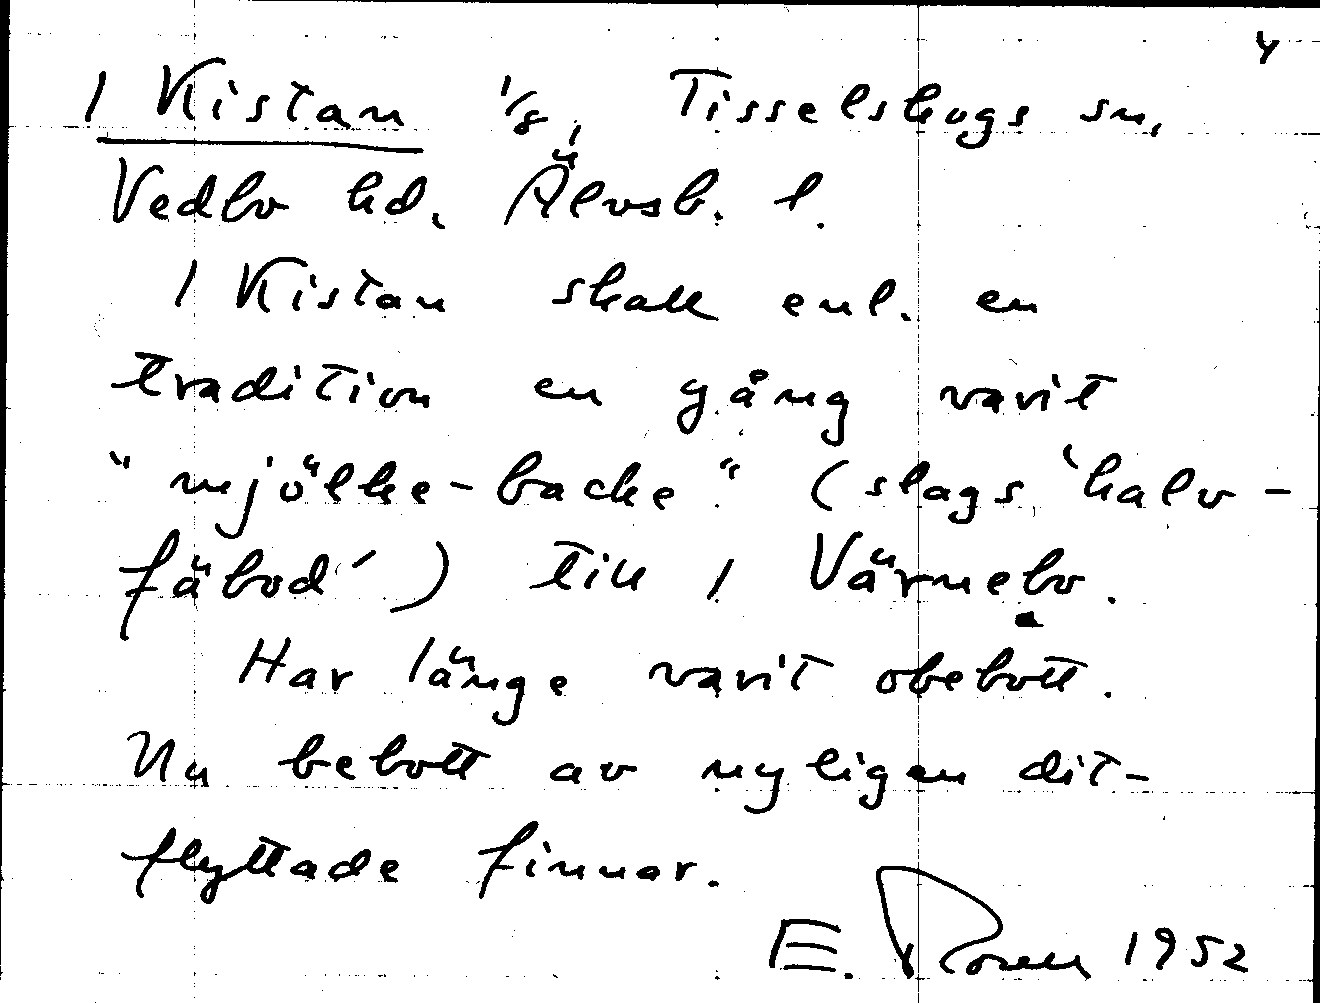 4
/ Kistan 1/8, Tisselskogs sn,
Vedbo hd. Älvsb. l.
/ Kistan skall enl. en
tradition en gång varit
"mjölke-backe" (slags 'halv-
fäbod') till / Värmebo.
Har länge varit obebott.
Nu bebott av nyligen dit-
flyttade finnar.
E. Rosen 1952